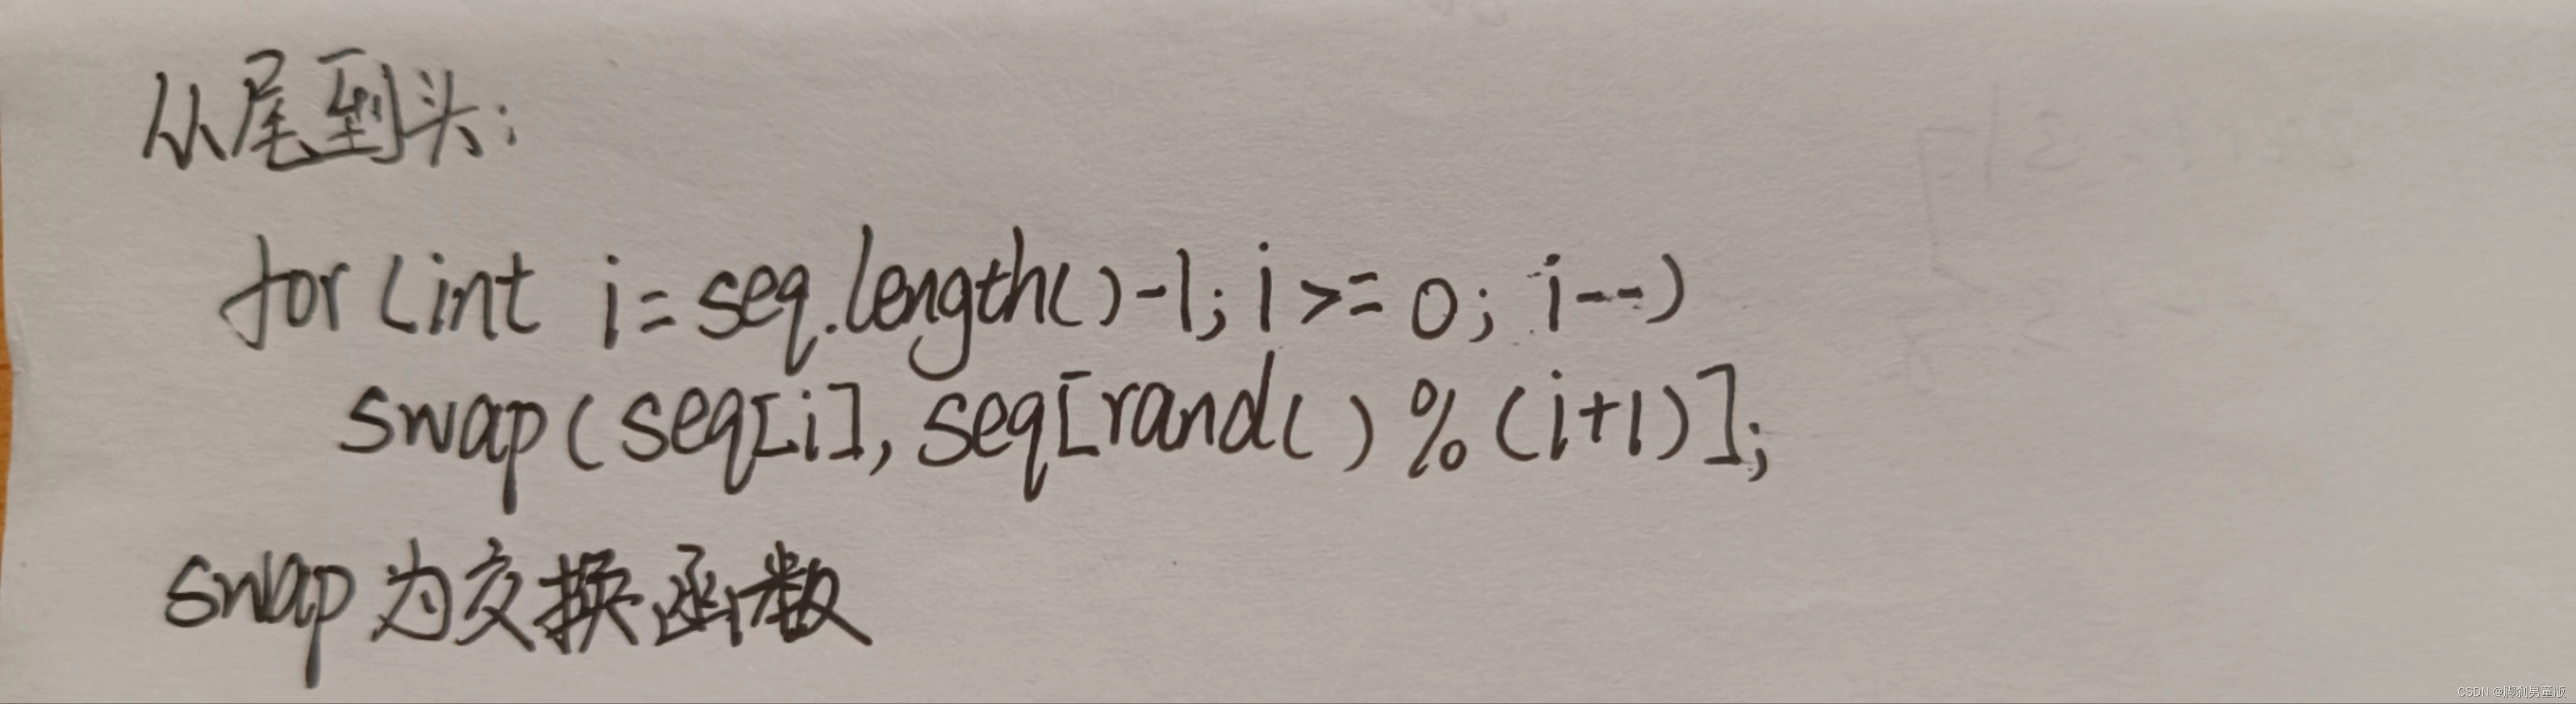 从尾到头:
for(int i=seq.length()-1;i>=0;i--)
swap(seq[i],seq[rand()%(i+1)];
swap为交换函数
CSDN @脚刹男童版